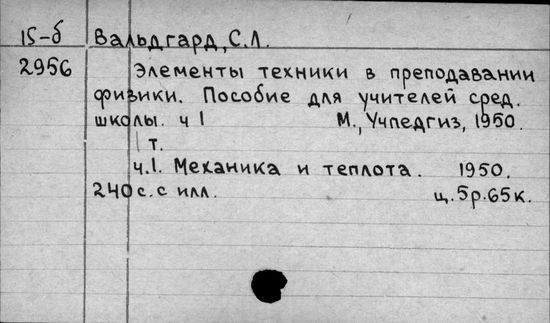 15-б Вальдгард, С.Л.
2956 Элементы техники в преподавании
физики. Пособие для учителей сред.
школы. ч 1 М., Учпедгиз, 1950.
1 т.
ч.1. Механика и теплота. 1950.
240 с. с илл. ц. 5р. 65к.